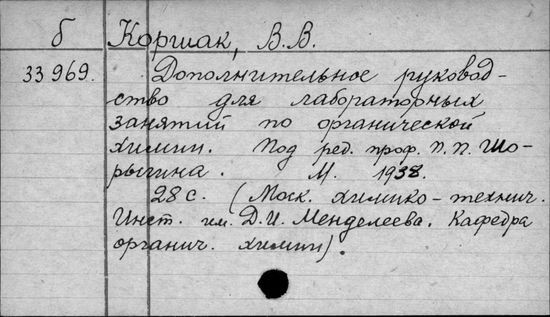 б Коршак, В.В.
33969. Дополнительное руковод-
ство для лабораторных
занятий по органической
химии. Под ред. проф. П.П. Шо-
рыгина. М. 1938.
28 с. (Моск. химико-технич.
Инст. им. Д.И. Менделеева. Кафедра
органич. химии).